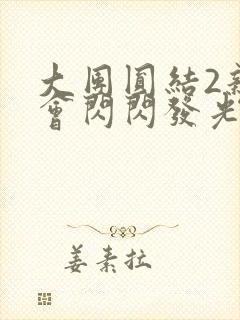 大團圓結2新
會閃閃發光
姜素拉